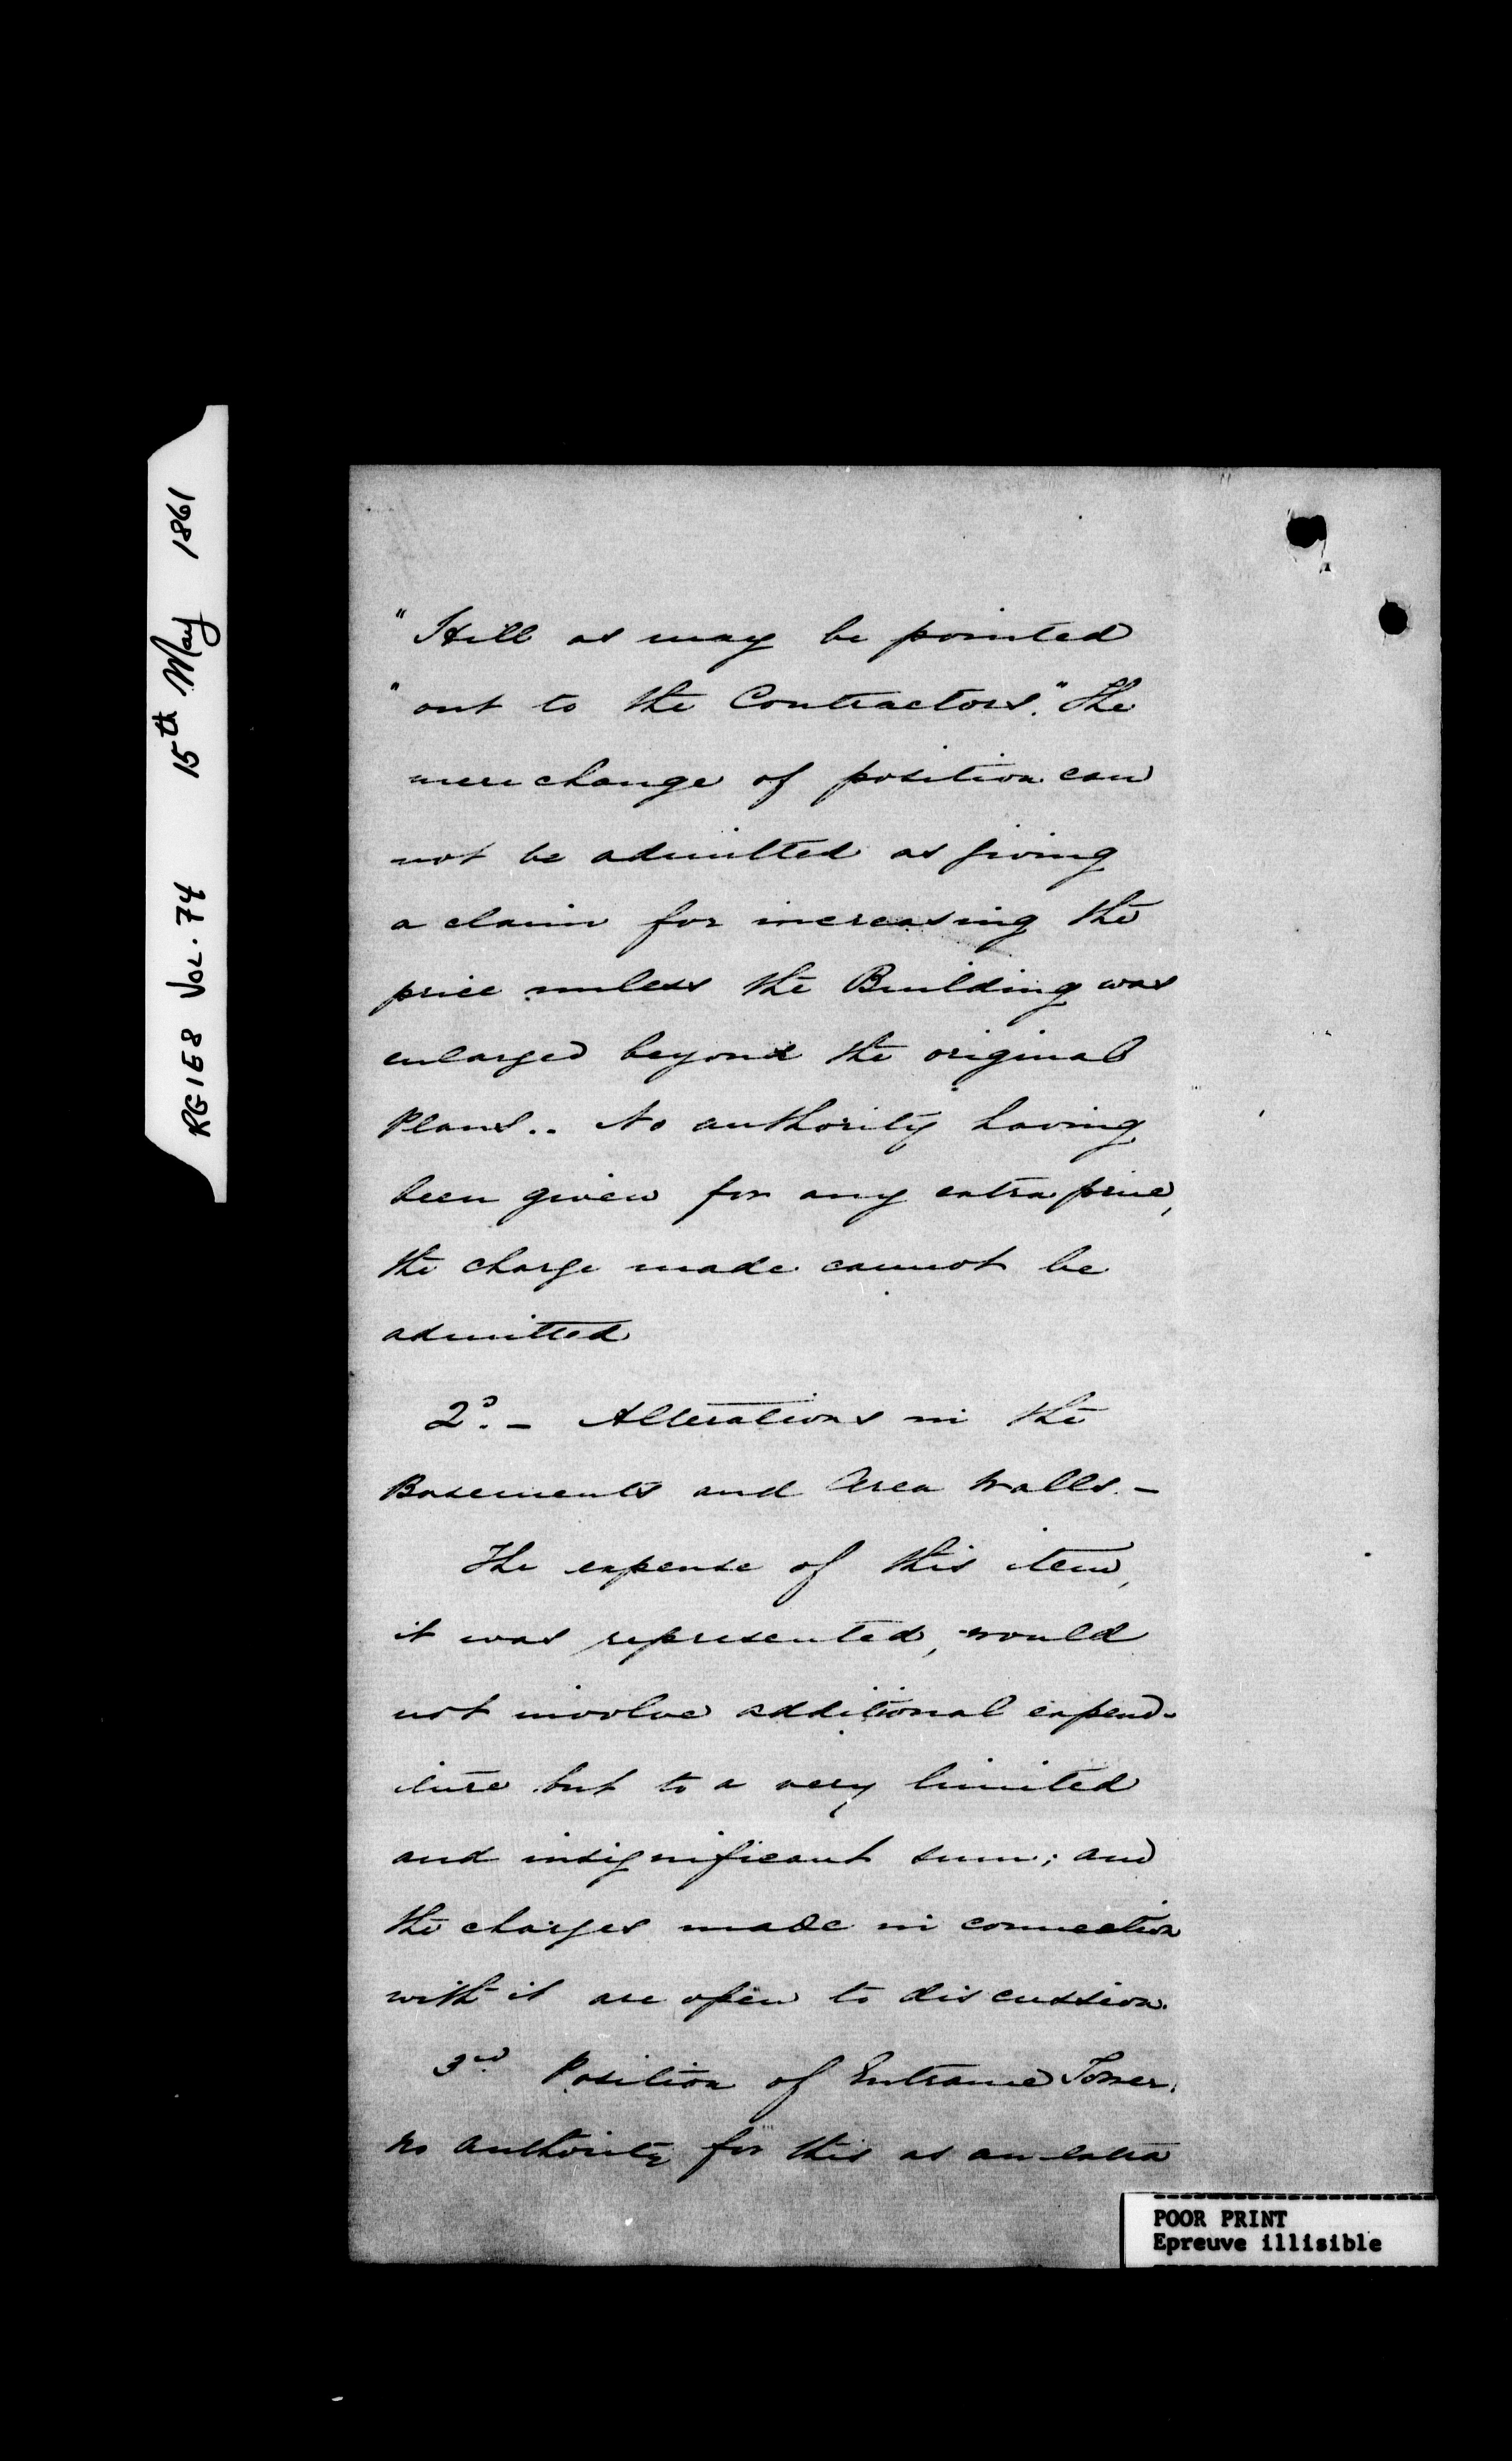 RG1E8 VOL. 74 15th May 1861
"Hill as may be pointed
"out to the Contractors." The
mere change of position can
not be admitted as giving
a claim for increasing the
price unless the Building was
enlarged beyond the original
Plans.. No authority having
been given for any extra price,
the charge made cannot be
admitted
2°. - Alterations in the
Basements and Area Walls. -
The expense of this item,
it was represented, would
not involve additional expend-
iture but to a very limited
and insignificant sum; and
the charges made in connection
with it are open to discussion.
3rd Position of Entrance Tower.
No authority for this as an extra
POOR PRINT
Epreuve illisible